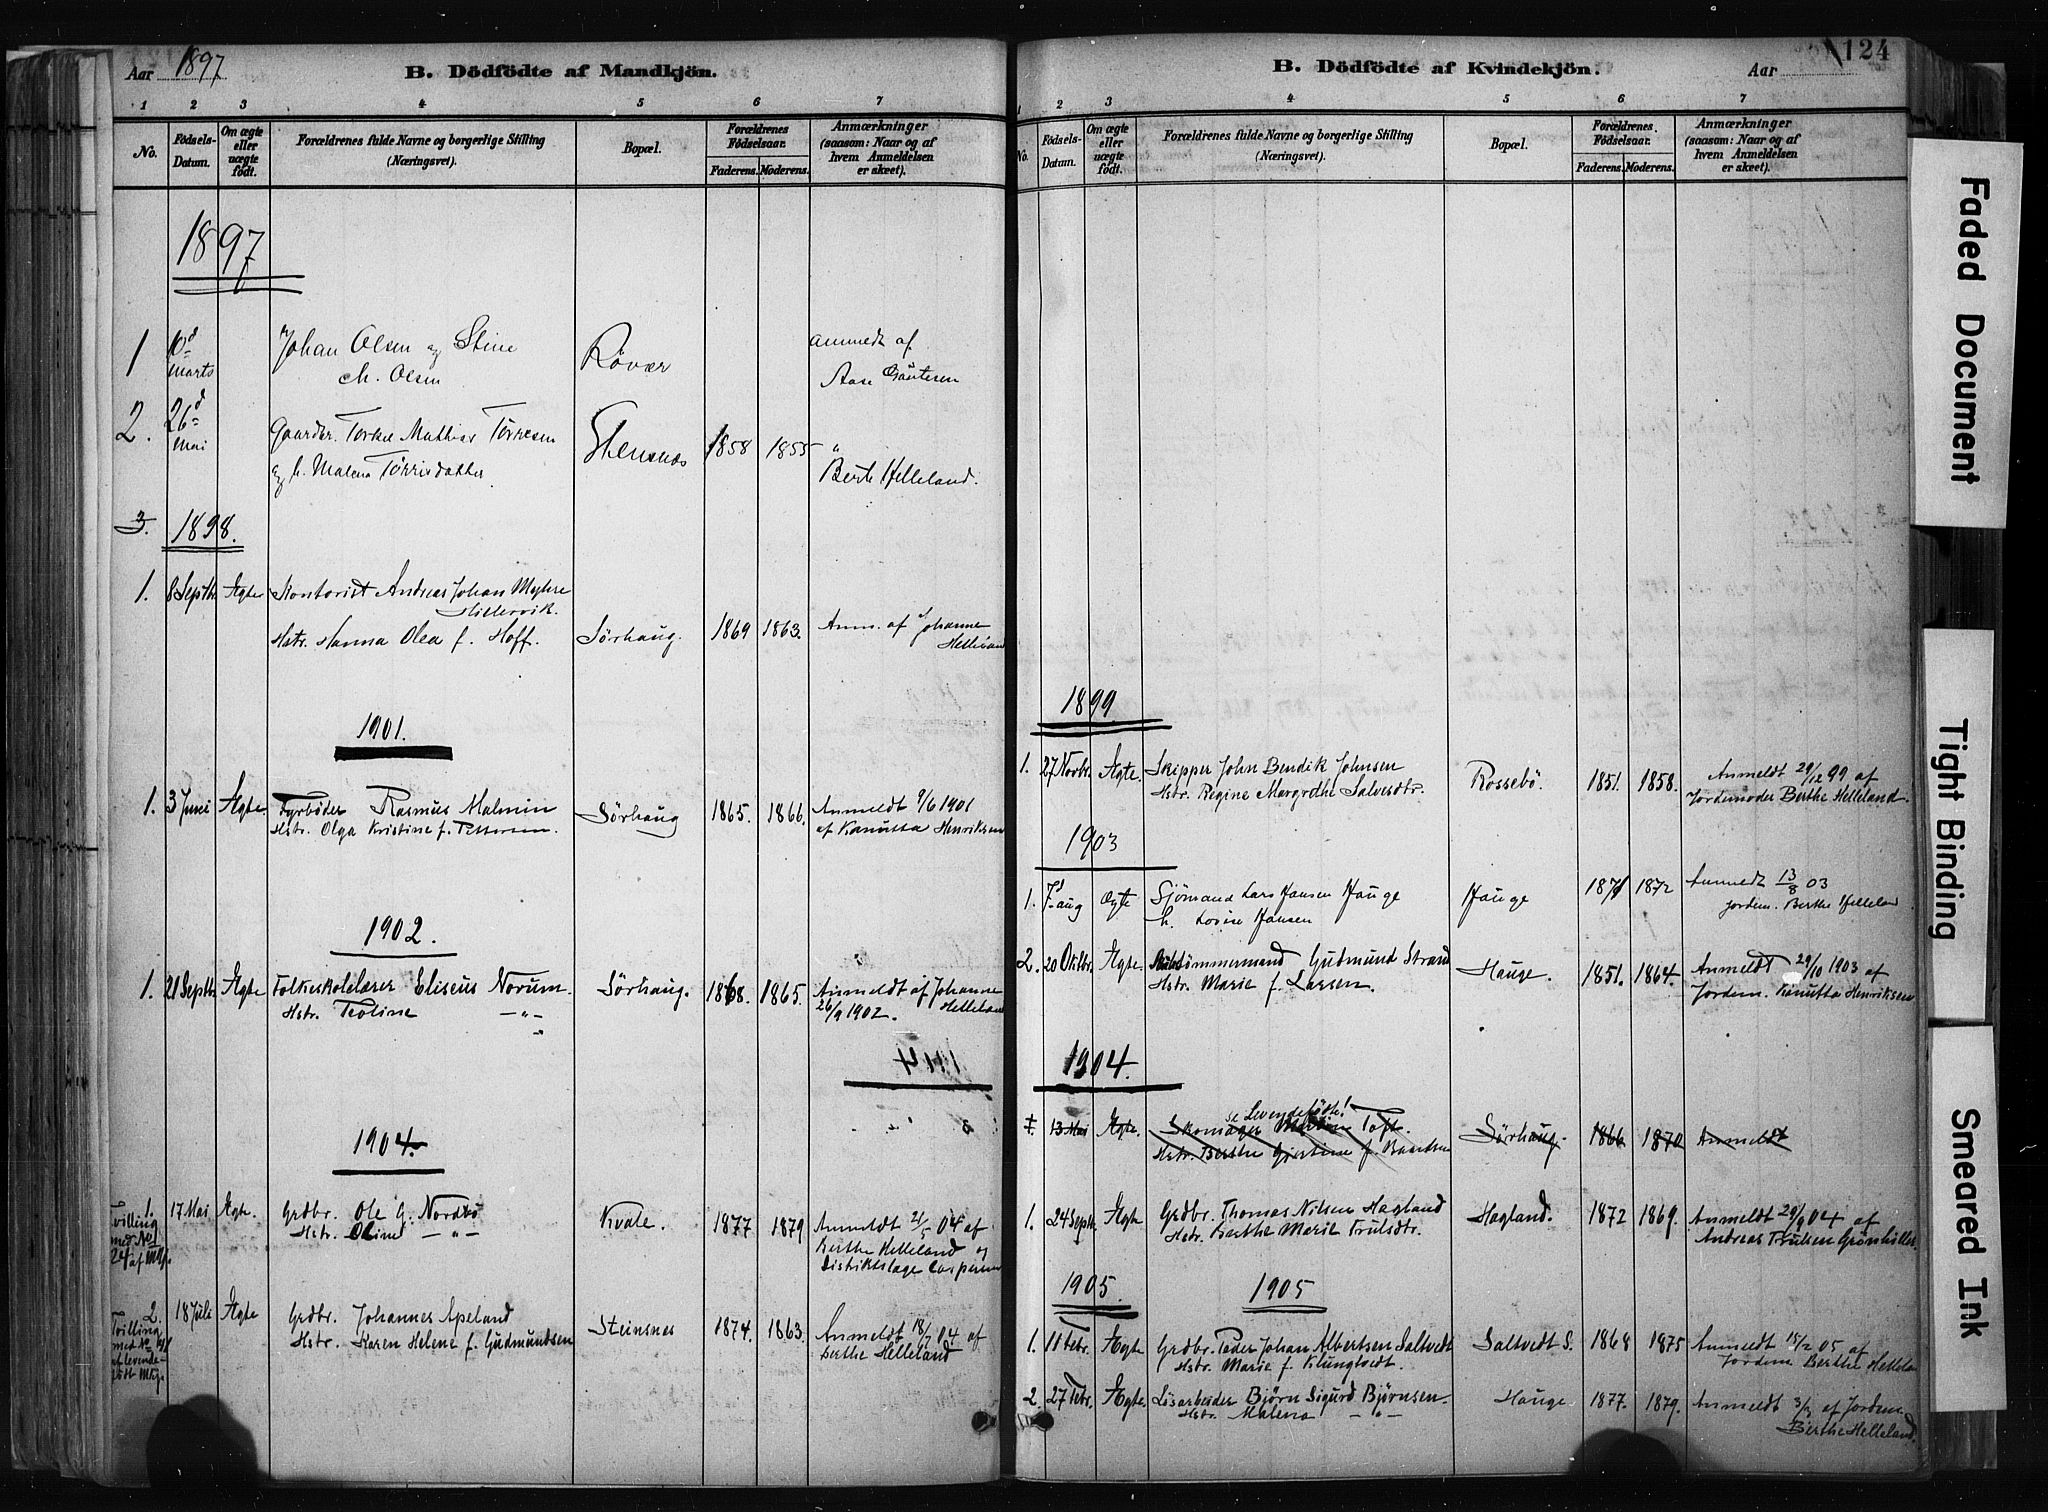 Aar 1897
B. Dödfödte af Mandkjön.
1 2 3 4 5 6 7
No.
Födsels-Datum.
Om ægte eller uægte födt.
Forældrenes fulde Navne og borgerlige Stilling
(Næringsvei).
Bopæl.
Forældrenes Födselsaar.
Faderens. Moderens.
Anmærkninger
(saasom: Naar og af
hvem Anmeldelsen
er skeet).
1897
1 10d marts Johan Olsen og Stine Røvær anmeldt af
M. Olsen Aase Gautesen
2. 26d Mai Gaardbr. Torkel Mathias Törresen Stensnæs 1858 1855 "
og h. Malena Törrisdatter Berte Helleland.
3. 1898.
1. 8 Septbr. Ægte Kontorist Andreas Johan Myhre
Hillervik.
Hstr. Hanna Olea f. Hoff. Sørhaug. 1869 1863. Anm. af Johanne
Helleland
1901.
1. 3 Juni Ægte. Fyrbøder Rasmus Malmin Sørhaug 1865. 1866. Anmeldt 9/6 1901
Hstr. Olga Kristine f. Pettersen. af Kanutta Henriksen
1902.
1. 21 Septbr. Ægte Folkeskolelærer Eliseus Norum. Sørhaug. 1868. 1865. Anmeldt af Johanne
Hstr. Teoline —"— 26/9 1902. Helleland
1904.
1. 17 Mai Ægte. Grdbr. Ole G. Nordbø Kvale. 1877 1879 Anmeldt 21/5 04 af
Tvilling Hstr. Oline —"— Berthe Helleland og
med No 1 Distriktslæge Caspersen
24 af Mkj.
2. 18 Juli Ægte Grdbr. Johannes Apeland Steinsnes 1874. 1863. Anmeldt 18/7 04. af
Tvilling Hstr. Karen Helene f. Gudmundsen Berthe Helleland
med No
af levende-
født Mkj.
124
B. Dödfödte af Kvindekjön. Aar
1 2 3 4 5 6 7
No.
Födsels-Datum.
Om ægte eller uægte födt.
Forældrenes fulde Navne og borgerlige Stilling
(Næringsvei).
Bopæl.
Forældrenes Födselsaar.
Faderens. Moderens.
Anmærkninger
(saasom: Naar og af
hvem Anmeldelsen
er skeet).
1899
1. 27 Novbr. Ægte. Skipper John Bendik Johnsen Rossebö. 1851. 1858. Anmeldt 29/12 99 af
Hstr. Regine Margrethe Salvesdtr. Jordemoder Berthe Helleland.
1903
1. 7d aug Ægte Sjömand Lars Hansen Hauge Hauge 1871 1872 Anmeldt 13/8 03
h. Lovise Hansen Jordem. Berthe Helleland
2. 20 Oktbr. Ægte. Skibstömmermand Gudmund Strand Hauge. 1851. 1864. Anmeldt 29/10 1903 af
Hstr. Marie f. Larsen. Jordem. Kanutta Henriksen
1904.
se Levendefødte!
1. 13 Mai Ægte. Skomager Martin Toft. Sørhaug. 1866 1870 Anmeldt
Hstr. Berthe Gjertine f. Baardsen
1. 24 Septbr. Ægte Grdbr. Thomas Nilsen Hagland Hagland. 1872 1869. Anmeldt 29/9 04 af
Hstr. Berthe Marie Trulsdtr. Andreas Trulsen Grønhiller.
1905. 1905
1. 11 Febr. Ægte Grdbr. Peder Johan Albertsen Saltvedt Saltvedt S. 1868 1875 Anmeldt 15/2 05. af
Hstr. Marie f. Klungtvedt. Jordem Berthe Hellelan
2. 27 Febr. Ægte. Løsarbeider Bjørn Sigurd Bjørnsen. Hauge 1877. 1879. Anmeldt 3/3 af Jordem
Hstr. Malena —"— Berthe Helleland.
Faded Document
Tight Binding
Smeared Ink